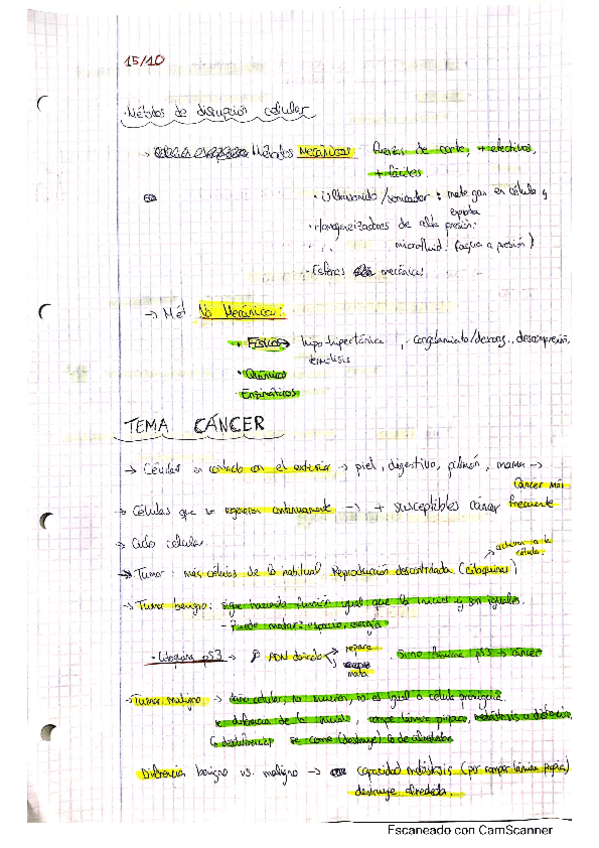 15/10
· Métodos de disrupción celular
→ Métodos mecánicos fuerzas de corte, + efectivos,
+ fáciles
· Ultrasonido/sonicador : mete gas en célula y
explota
· Homogeneizadores de alta presión.
microfluid. (agua a presión)
· Esferas mecánicas.
→ Mét No Mecánicos:
· Físicos → hipo-hipertónica, congelamiento/descong., descompresión,
termólisis
· Químicos
· Enzimáticos
TEMA CÁNCER
→ Células en contacto con el exterior → piel, digestivo, pulmón, mama →
Cáncer más
→ Células que se regeneran continuamente → + susceptibles cáncer frecuente
→ Ciclo celular
→ Tumor : más células de lo habitual. Reproducción descontrolada. (citoquinas)
a la
célula.
→ Tumor benigno: sigue haciendo función igual que la inicial y son iguales.
- Puede matar: espacio, energía
· Citoquina p53 → ADN dañado repara
mata
Si no funciona p53 → cáncer
· Tumor maligno → no función, no es igual a célula primigenia
se diferencia de la inicial, rompe lámina propia, metástasis a distancia,
se come (destruye) lo de alrededor
Diferencia benigno vs. maligno → capacidad metástasis (por romper lámina propia)
destruye alrededor.
Escaneado con CamScanner